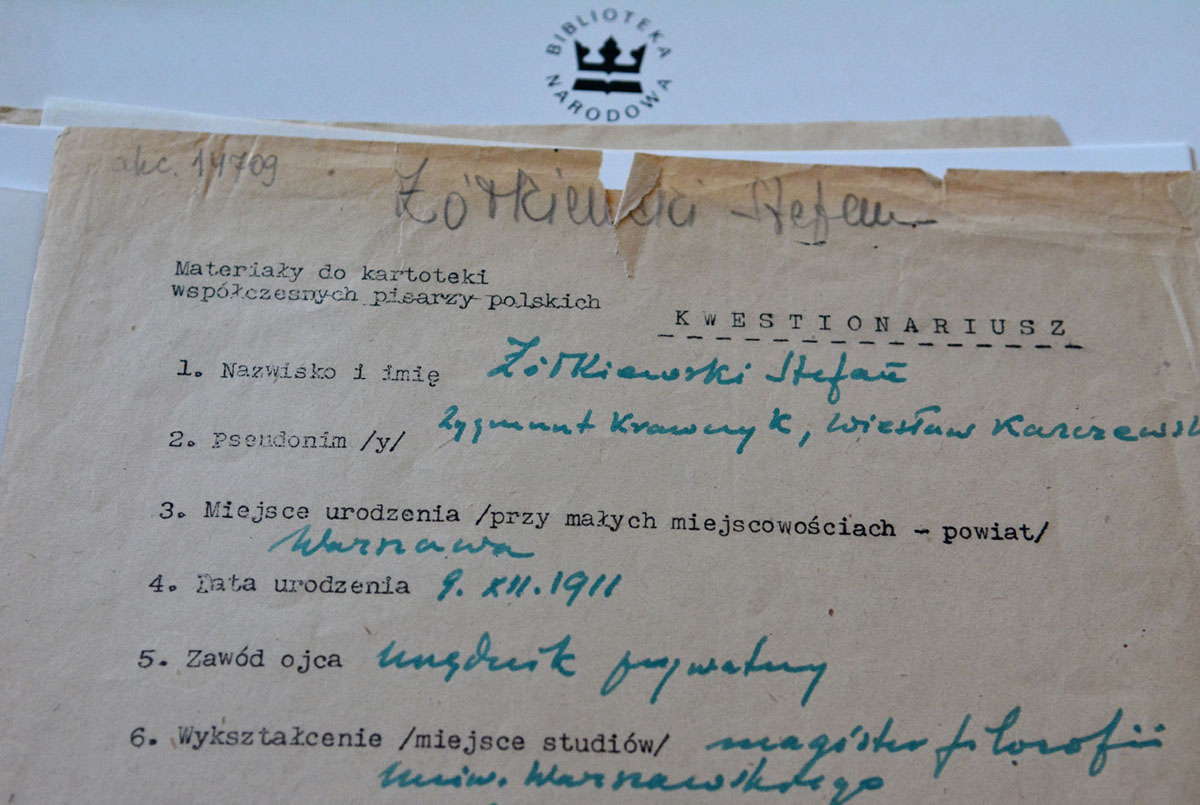 BIBLIOTEKA NARODOWA
akc. 14709
Żółkiewski Stefan
Materiały do kartoteki
współczesnych pisarzy polskich
KWESTIONARIUSZ
1. Nazwisko i imię Żółkiewski Stefan
2. Pseudonim /y/ Zygmunt Krawczyk, Wiesław Karczewsk
3. Miejsce urodzenia /przy małych miejscowościach - powiat/
Warszawa
4. Data urodzenia 9. XII. 1911
5. Zawód ojca urzędnik prywatny
6. Wykształcenie /miejsce studiów/ magister filozofii
Uniw. Warszawskiego